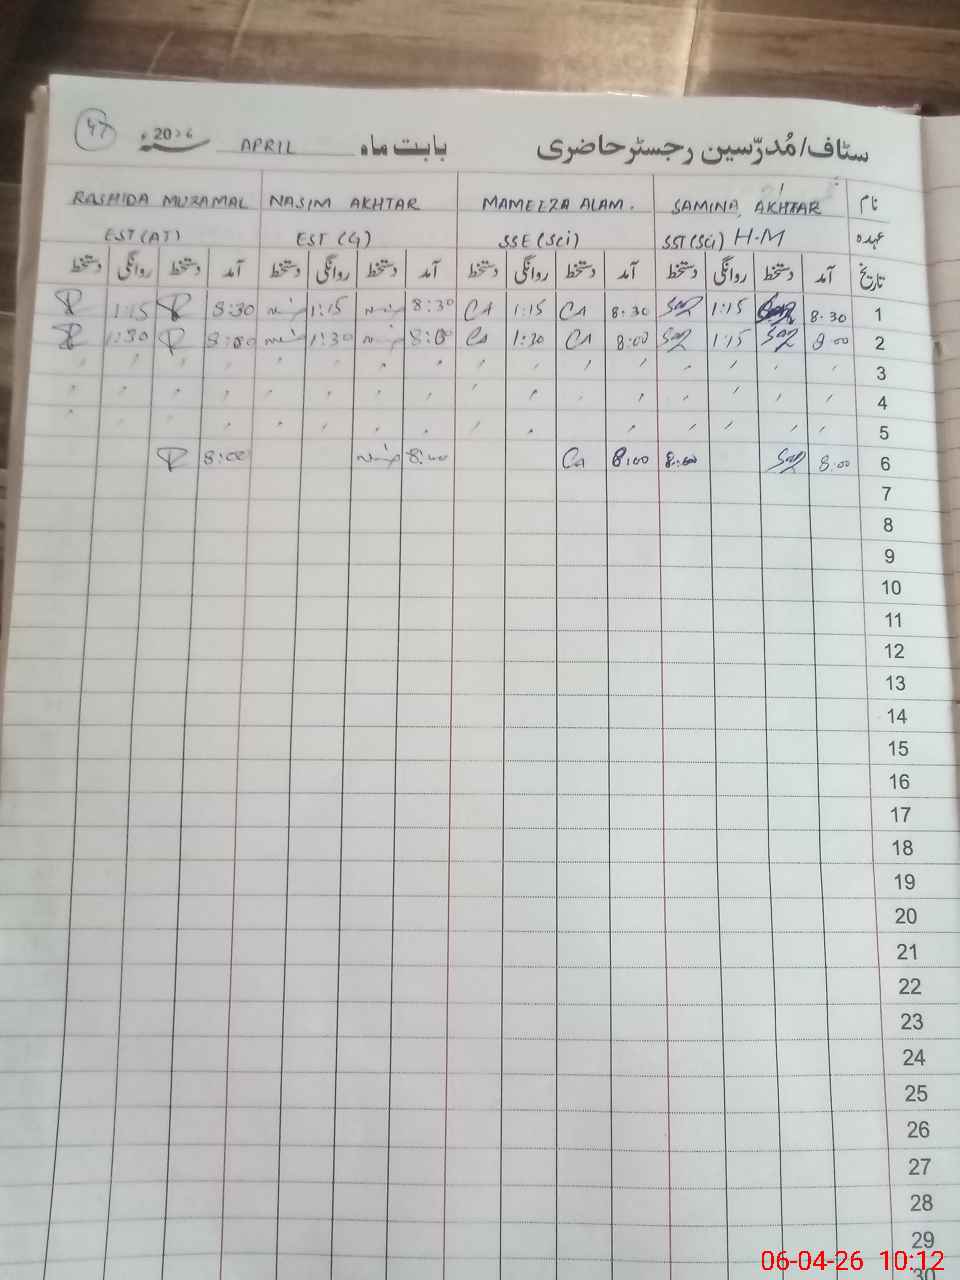 47 2026 APRIL بابت ماہ سٹاف/مُدرّسین رجسٹر حاضری
RASHIDA MUZAMAL NASIM AKHTAR MAMEEZA ALAM. SAMINA AKHTAR نام
EST(AT) EST (G) SSE(Sci) SST(Sci) H-M عہدہ
دستخط روانگی دستخط آمد دستخط روانگی دستخط آمد دستخط روانگی دستخط آمد دستخط روانگی دستخط آمد تاریخ
1:15 8:30 1:15 8:30 CA 1:15 CA 8:30 1:15 8:30 1
1:30 8:00 1:30 8:00 CA 1:30 CA 8:00 1:15 8:00 2
3
4
5
8:00 8:00 CA 8:00 8:00 8:00 6
7
8
9
10
11
12
13
14
15
16
17
18
19
20
21
22
23
24
25
26
27
28
29
30
06-04-26 10:12